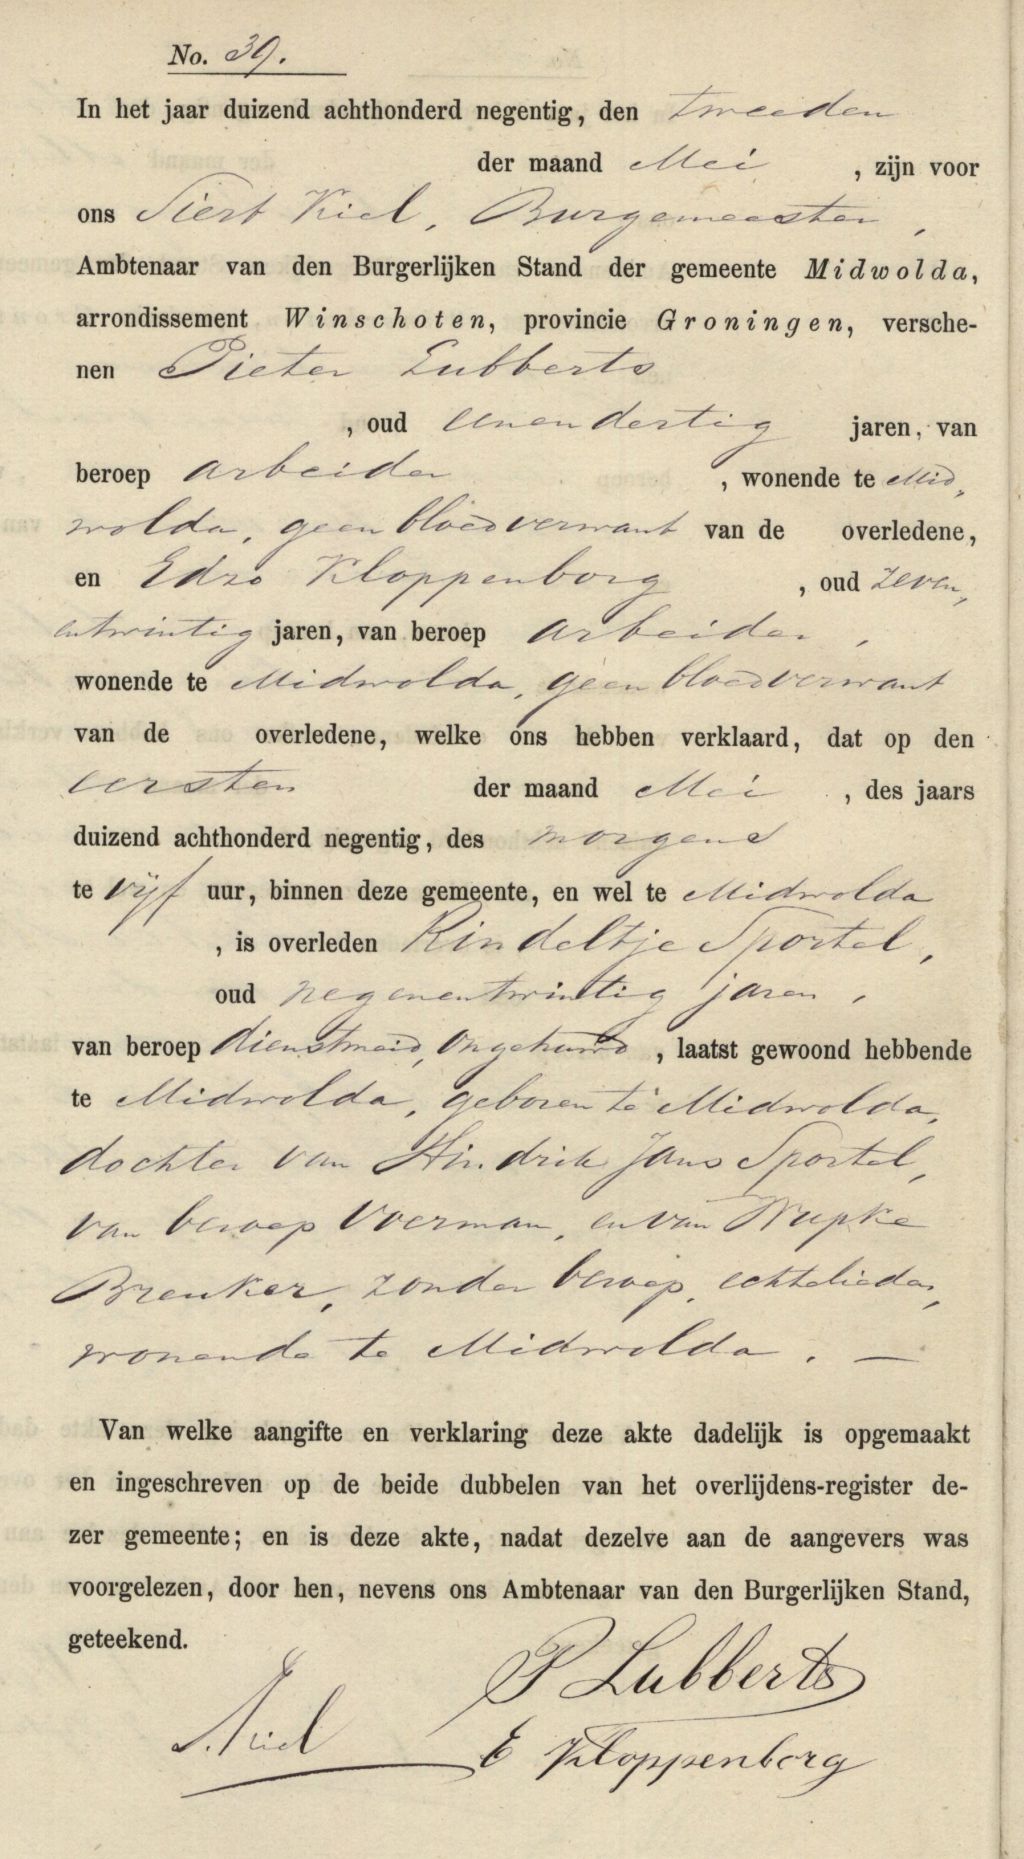 No. 39.
In het jaar duizend achthonderd negentig, den tweeden
der maand Mei , zijn voor
ons Siert Kiel, Burgemeester,
Ambtenaar van den Burgerlijken Stand der gemeente Midwolda,
arrondissement Winschoten, provincie Groningen, versche-
nen Pieter Lubberts
, oud eenendertig jaren, van
beroep arbeider , wonende te Mid„
wolda, geen bloedverwant van de overledene,
en Edzo Kloppenborg , oud zeven„
entwintig jaren, van beroep arbeider,
wonende te Midwolda, geen bloedverwant
van de overledene, welke ons hebben verklaard, dat op den
eersten der maand Mei , des jaars
duizend achthonderd negentig, des morgens
te vijf uur, binnen deze gemeente, en wel te Midwolda
, is overleden Rindeltje Sportel,
oud negenentwintig jaren,
van beroep dienstmeid, ongehuwd , laatst gewoond hebbende
te Midwolda, geboren te Midwolda,
dochter van Hindrik Jans Sportel,
van beroep Voerman, en van Wupke
Breuker, zonder beroep, echtelieden,
wonende te Midwolda. —
Van welke aangifte en verklaring deze akte dadelijk is opgemaakt
en ingeschreven op de beide dubbelen van het overlijdens-register de-
zer gemeente; en is deze akte, nadat dezelve aan de aangevers was
voorgelezen, door hen, nevens ons Ambtenaar van den Burgerlijken Stand,
geteekend.
P Lubberts
S. Kiel
E Kloppenborg